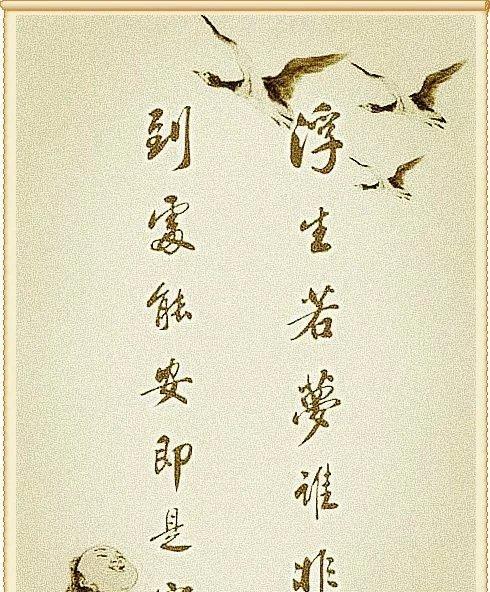 浮生若夢誰非
到處能安即是